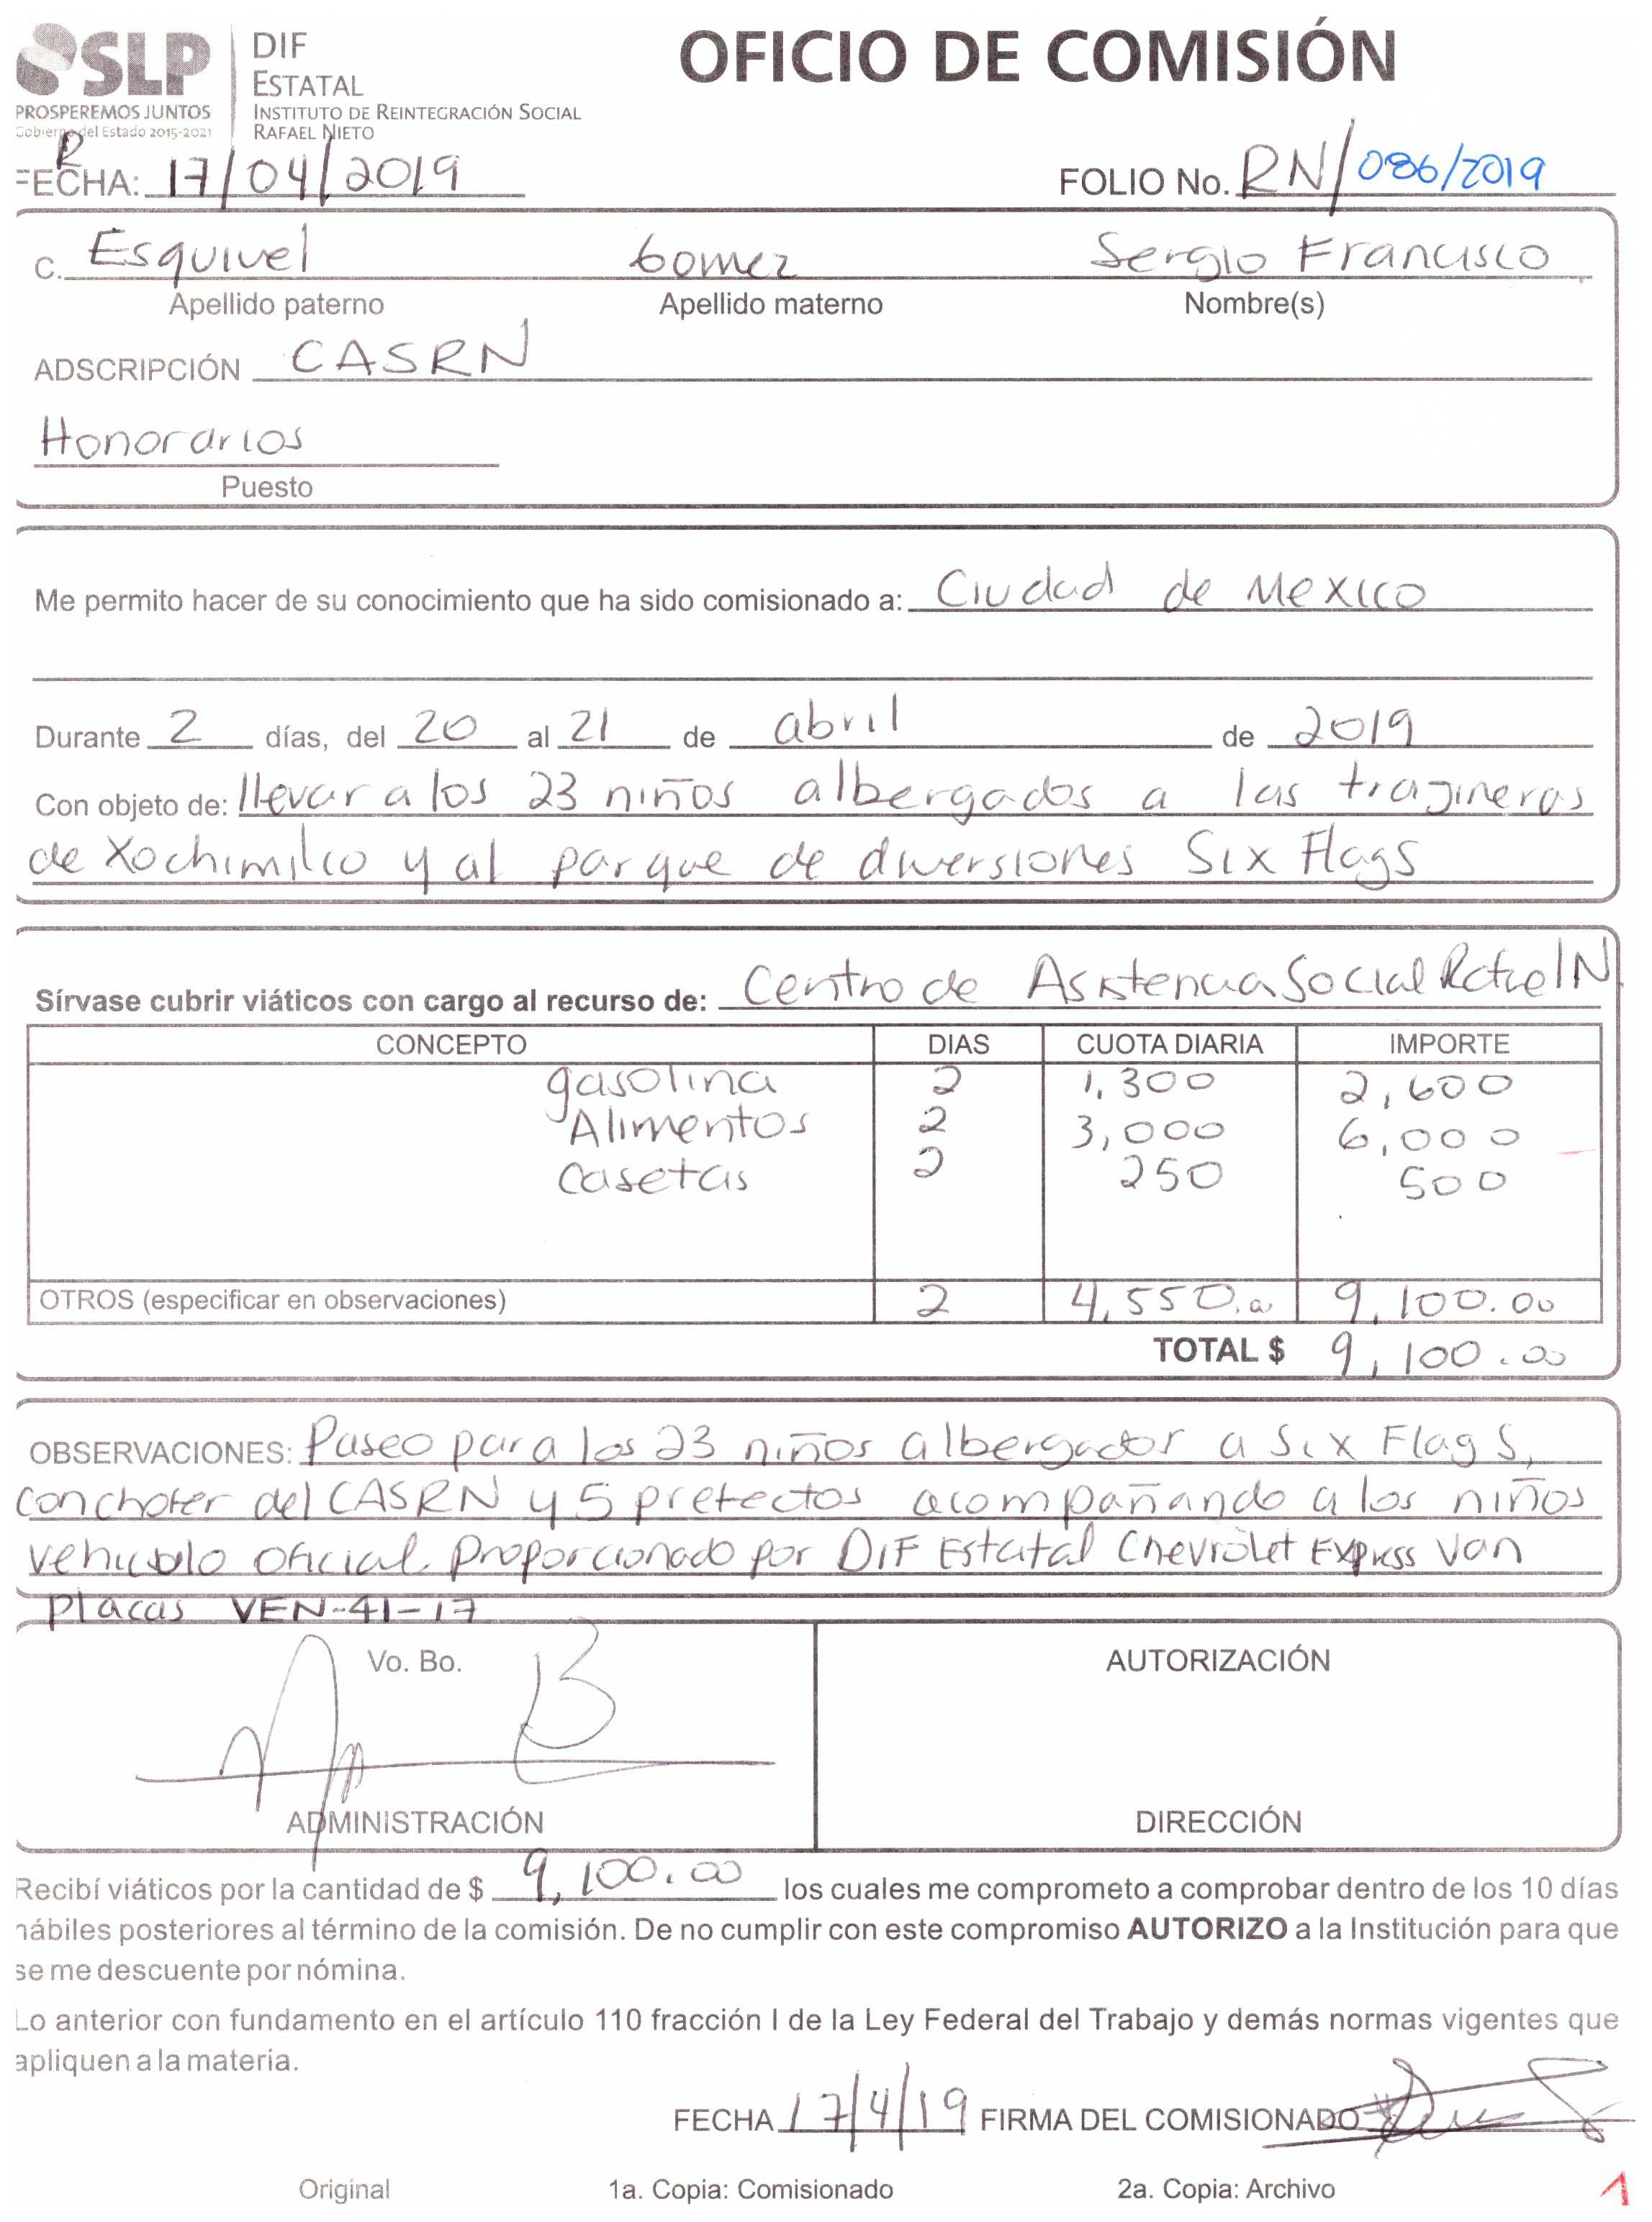 SLP
PROSPEREMOS JUNTOS
Gobierno del Estado 2015-2021
DIF
ESTATAL
INSTITUTO DE REINTEGRACIÓN SOCIAL
RAFAEL NIETO
OFICIO DE COMISIÓN
R
FECHA: 17/04/2019
FOLIO No. RN/086/2019
C. Esquivel Gomez Sergio Francisco
Apellido paterno Apellido materno Nombre(s)
ADSCRIPCIÓN CASRN
Honorarios
Puesto
Me permito hacer de su conocimiento que ha sido comisionado a: Ciudad de Mexico
Durante 2 días, del 20 al 21 de abril de 2019
Con objeto de: llevar a los 23 niños albergados a las trajineras
de Xochimilco y al parque de diversiones Six Flags
Sírvase cubrir viáticos con cargo al recurso de: Centro de Asistencia Social Rafael N
CONCEPTO DIAS CUOTA DIARIA IMPORTE
gasolina 2 1,300 2,600
Alimentos 2 3,000 6,000
casetas 2 250 500
OTROS (especificar en observaciones) 2 4,550.00 9,100.00
TOTAL $ 9,100.00
OBSERVACIONES: Paseo para los 23 niños albergados a Six Flags,
con chofer del CASRN y 5 prefectos acompañando a los niños
vehiculo oficial proporcionado por DIF Estatal Chevrolet Express Van
Placas VEN-41-17
Vo. Bo. AUTORIZACIÓN
ADMINISTRACIÓN DIRECCIÓN
Recibí viáticos por la cantidad de $ 9,100.00 los cuales me comprometo a comprobar dentro de los 10 días
hábiles posteriores al término de la comisión. De no cumplir con este compromiso AUTORIZO a la Institución para que
se me descuente por nómina.
Lo anterior con fundamento en el artículo 110 fracción I de la Ley Federal del Trabajo y demás normas vigentes que
apliquen a la materia.
FECHA 17/4/19 FIRMA DEL COMISIONADO
Original 1a. Copia: Comisionado 2a. Copia: Archivo
1